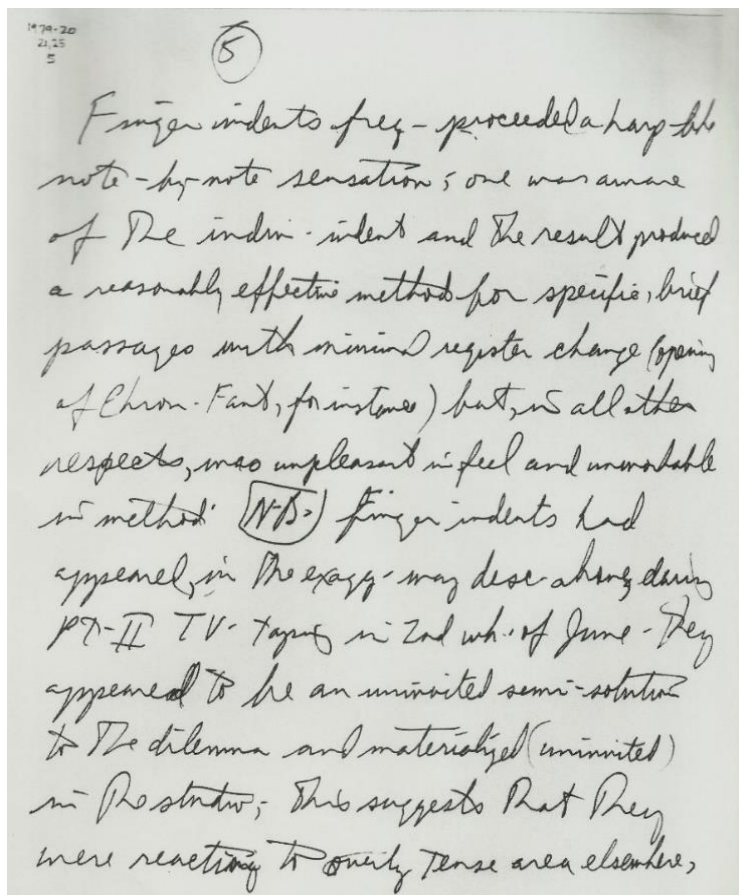 1979-20
21,25
5
5
Finger indents freq- proceeded a harp-like
note-by-note sensation; one was aware
of the indiv. indent and the result produced
a reasonably effective method for specific, brief
passages with minimal register change (opening
of Chrom. Fant, for instance) but, in all other
respects, was unpleasant in feel and unworkable
in method. N.B. Finger indents had
appeared, in the exagg. way desc. above, during
PT-II TV-taping in 2nd wk. of June - They
appeared to be an uninvited semi-solution
to the dilemma and materialized (uninvited)
in the studio; this suggests that they
were reacting to overly tense area elsewhere,